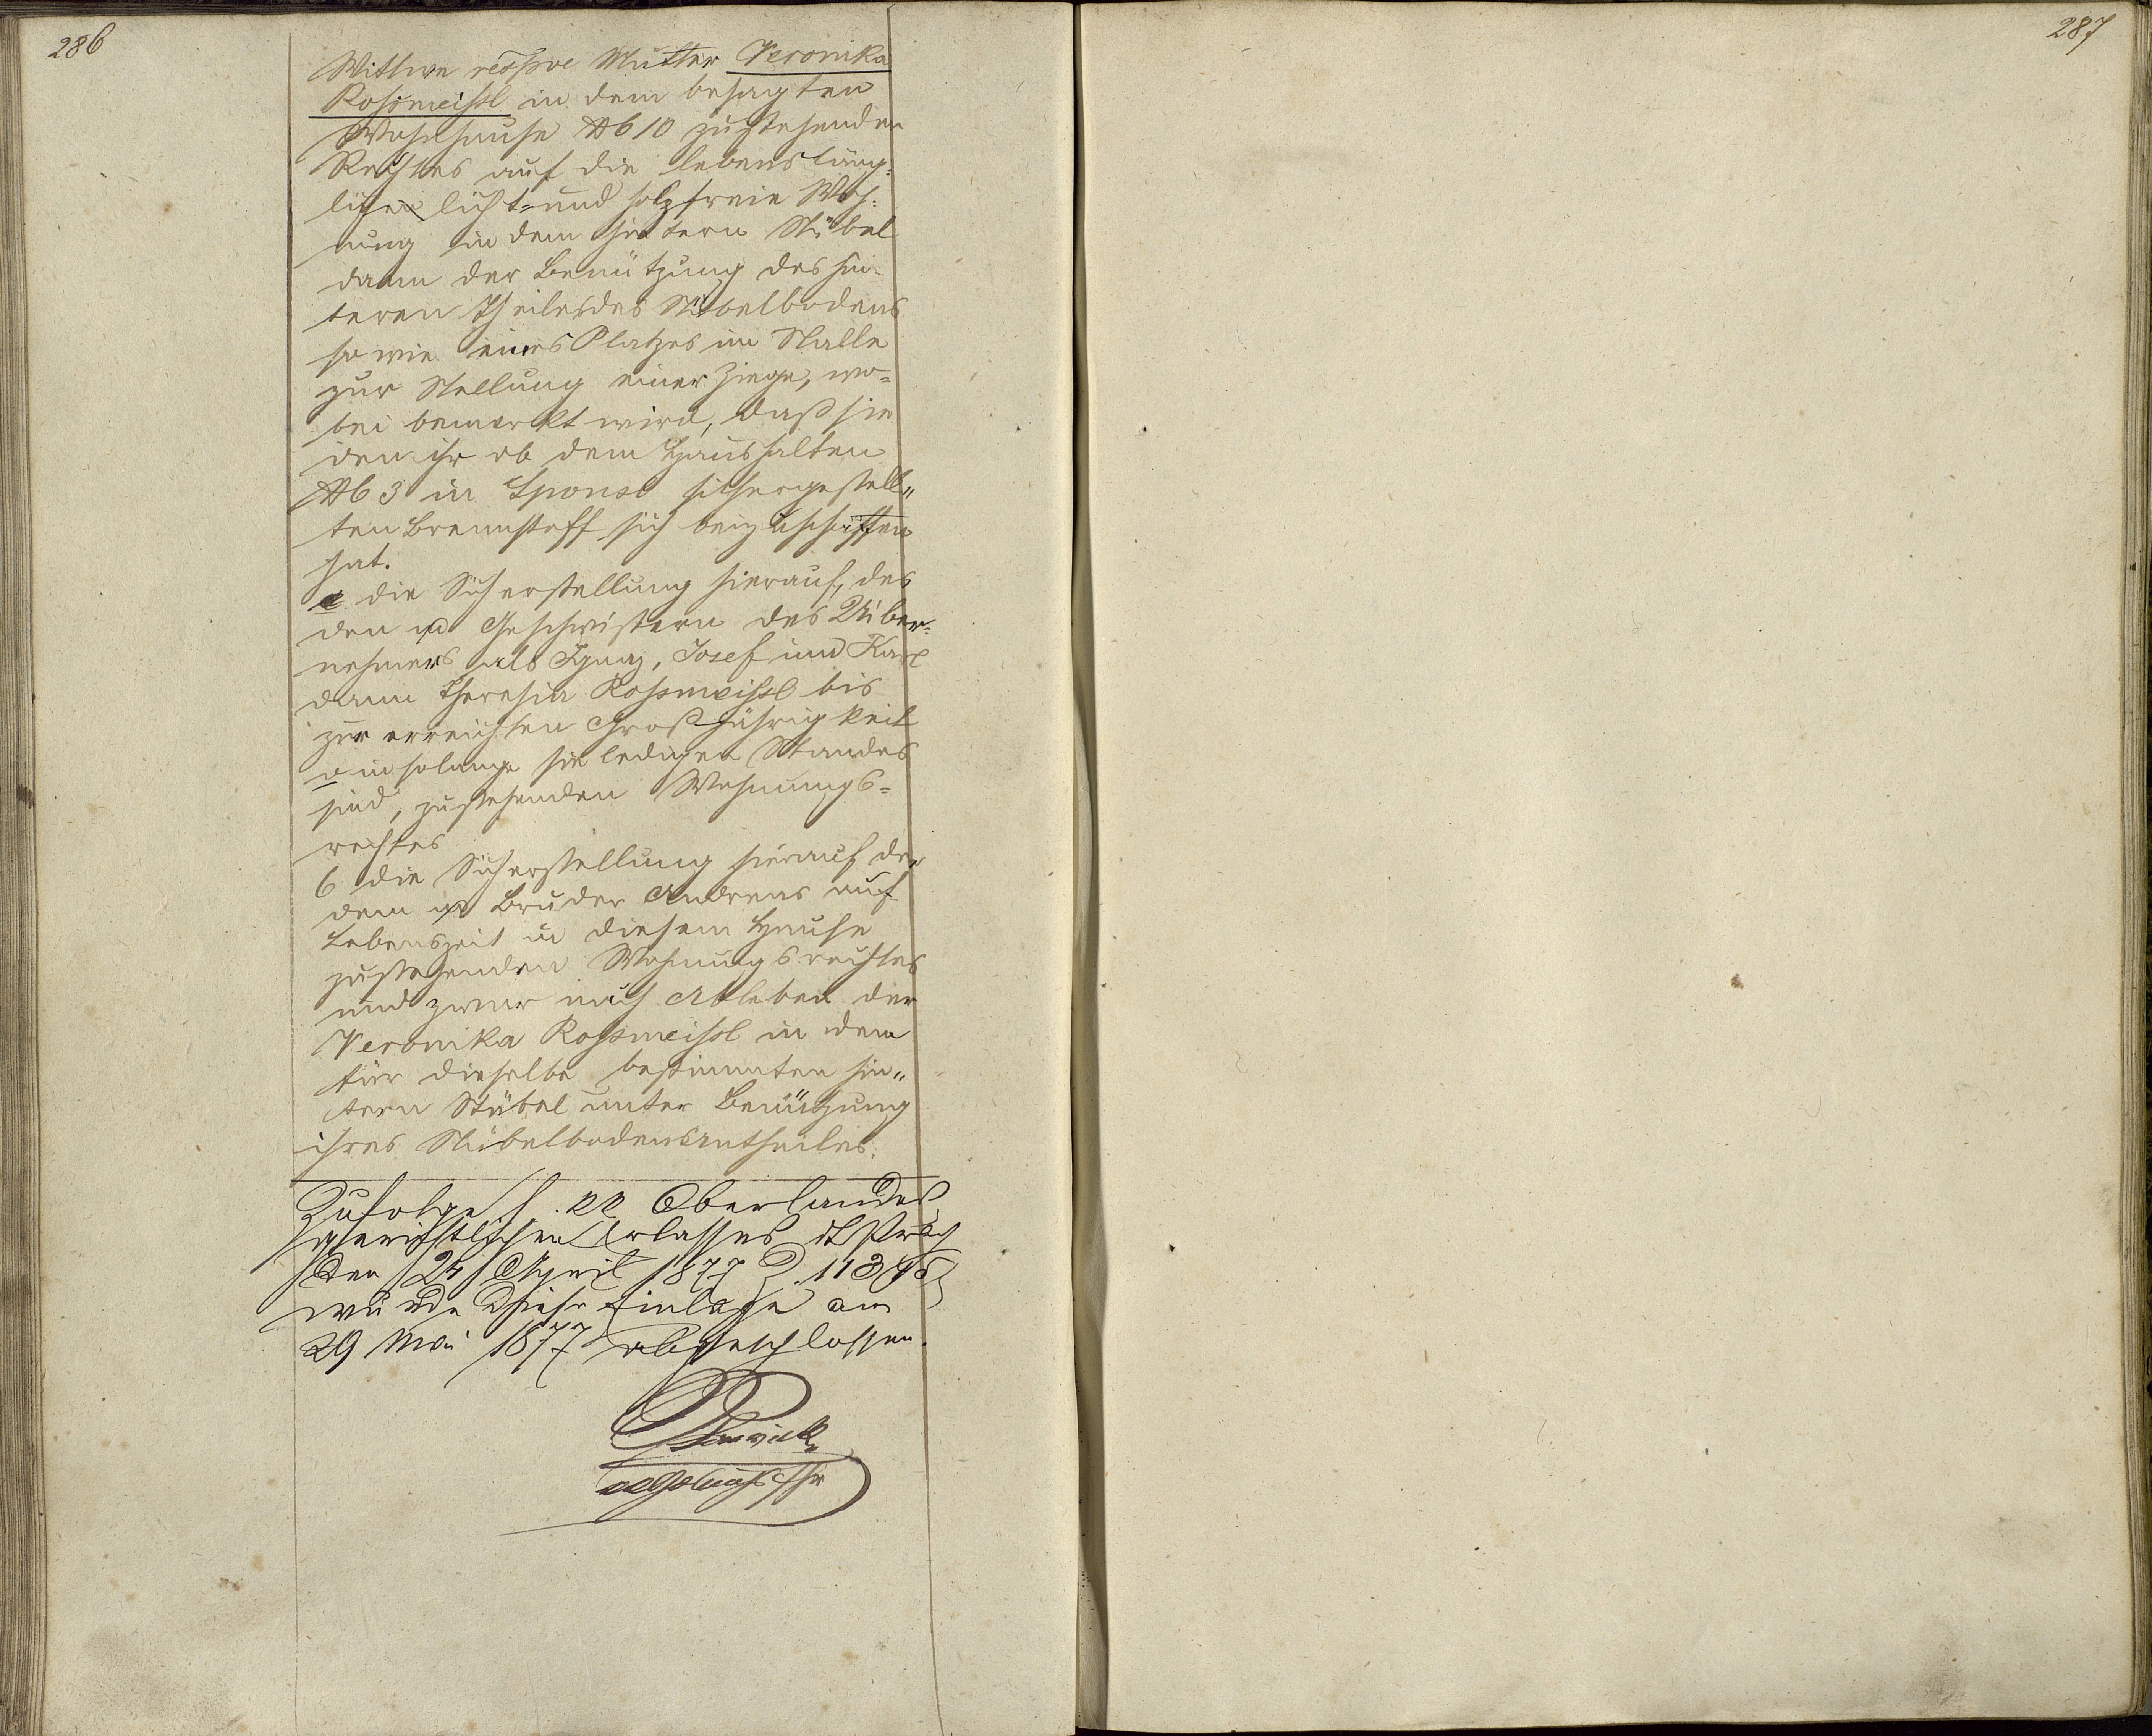 286
Wittwe respve Mutter Veronika
Rossmeissl in dem besagten
Wohnhause Nb 10 zustehenden
Rechtes auf die lebensläng-
liche licht- und holzfreie Woh-
nung in dem hintern Stübel
dann der Benützung des hin-
teren Theiles des Stübelbodens
so wie eines Platzes im Stalle
zur Stellung einer Ziege, wo-
bei bemerkt wird, daß sie
den ihr ob dem Haushalten
Nb 3 in Sponsl sichergestell-
ten Brennstoff sich beizuschaffen
hat.
die Sicherstellung hierauf, des
den Geschwistern des Über-
nehmers als Ignaz, Josef und Karl
dann Theresia Rossmeissl bis
zur erreichten Großjährigkeit
insolange sie ledigen Standes
sind, zustehenden Wohnungs-
rechtes
6 die Sicherstellung hierauf des
dem Bruder Andreas auf
Lebenszeit in diesem Hause
zustehenden Wohnungsrechtes
und zwar nach Ableben der
Veronika Rossmeissl in dem
für dieselbe bestimmten hin-
tern Stübel unter Benützung
ihres Stübelbodensantheiles.
Zufolge h. kk. Oberlandes
gerichtlichen Erlasses dt Prag
den 24 April 1877 Z. 11395
wurde diese Einlage am
29 Mai 1877 abgeschlossen.
287